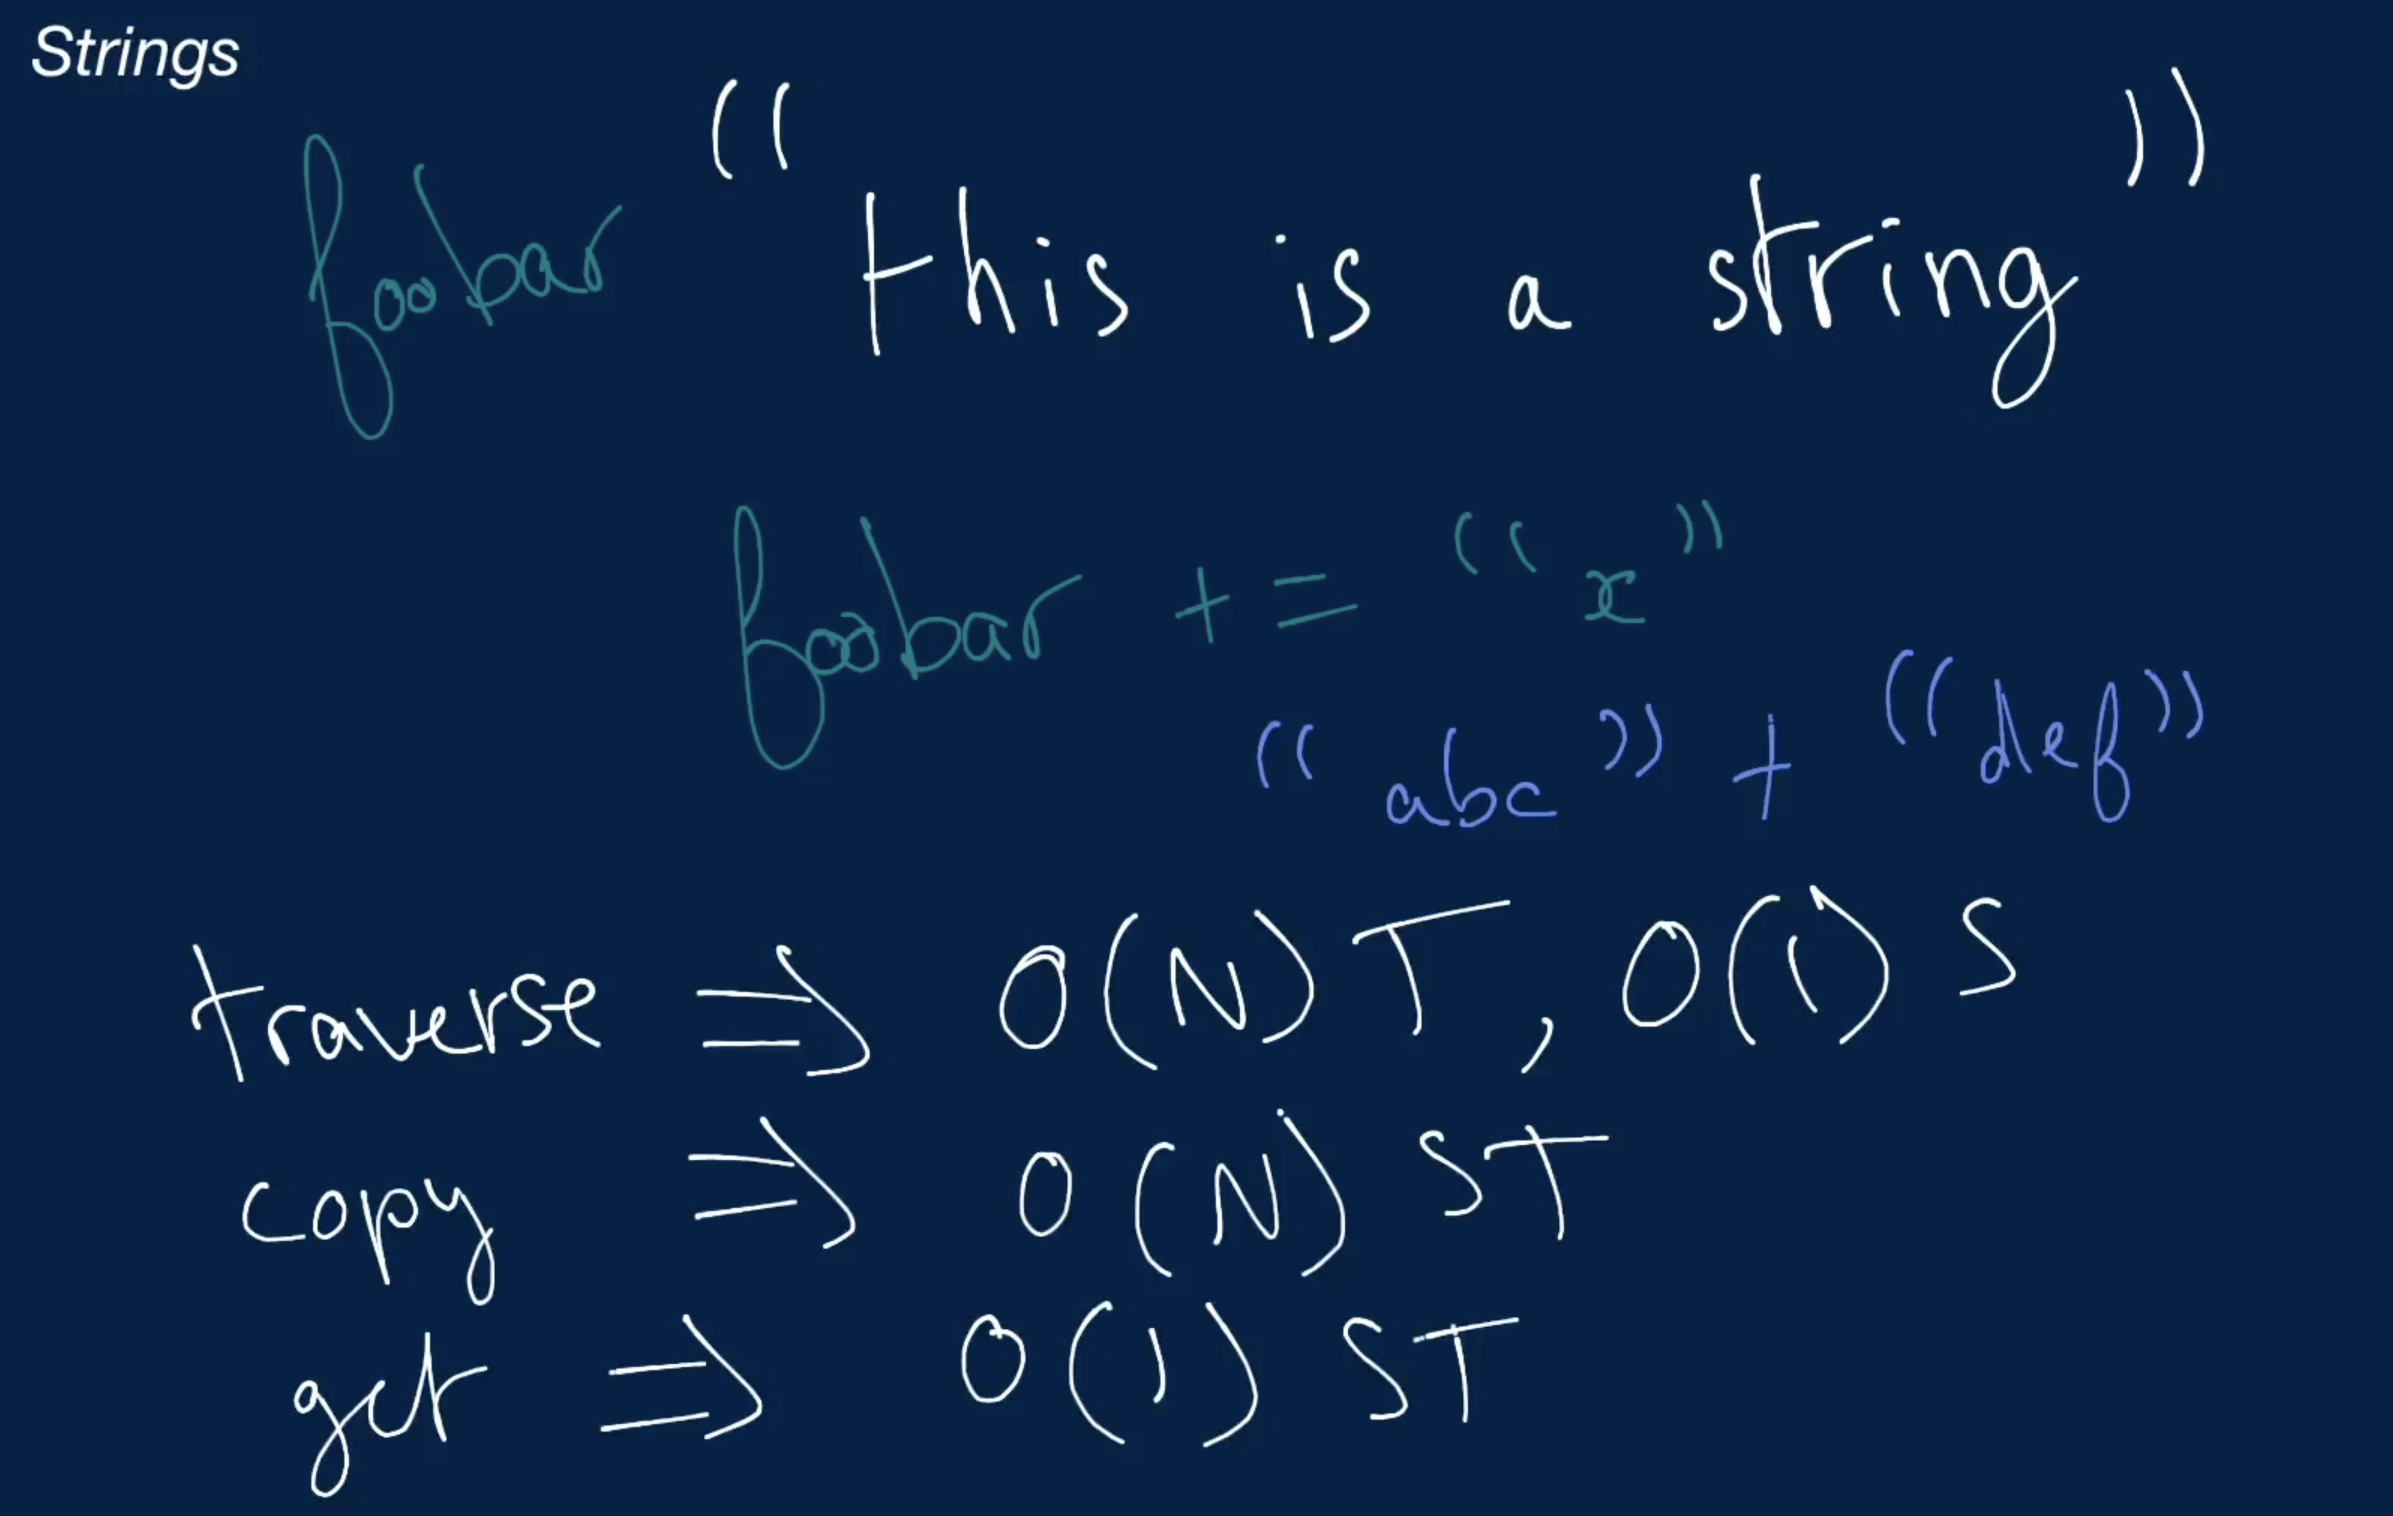 Strings
foobar "this is a string"
foobar += "x"
"abc" + "def"
traverse ⇒ O(N) T, O(1) S
copy ⇒ O(N) ST
get ⇒ O(1) ST